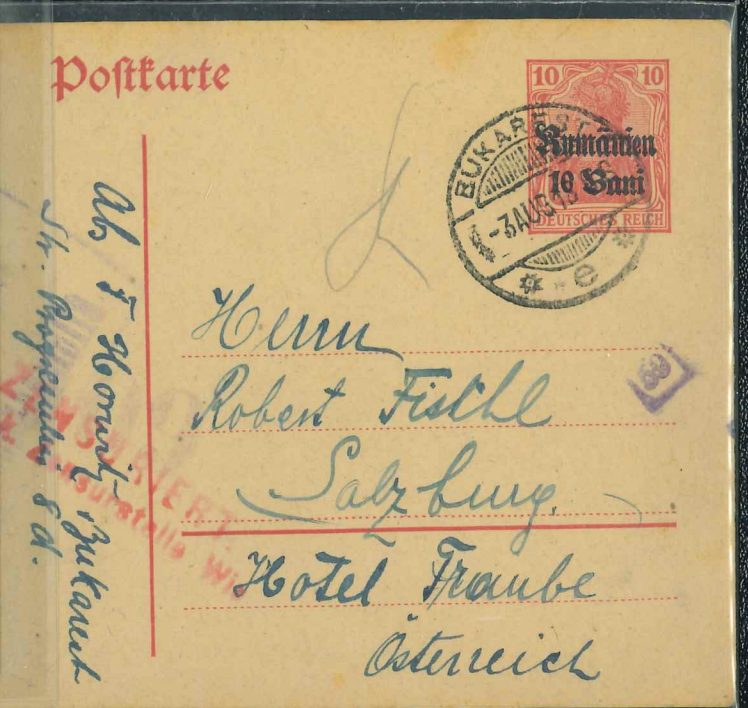 Postkarte
10 10
Rumänien
10 Bani
DEUTSCHES REICH
BUKAREST
-3AUG18
* e *
Herrn
Robert Fischl
Salzburg.
Hotel Traube
Österreich
Abs F Horwitz Bukarest
Str. 8 d.
ZENSURIERT
Zensurstelle Wi